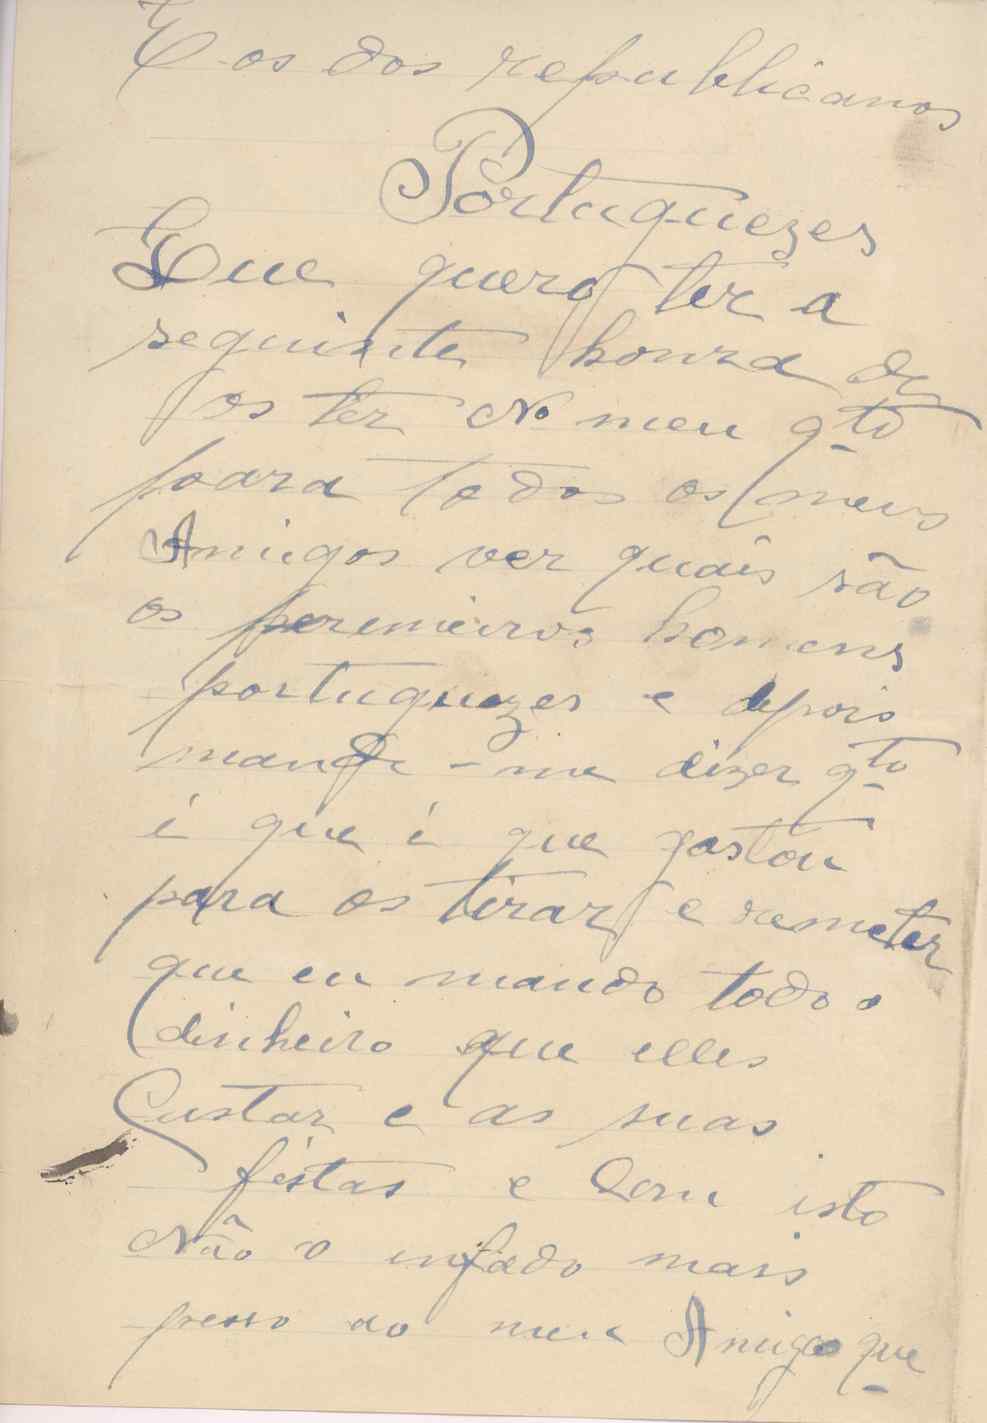 E os dos republicanos
Portuguezes
Que quero ter a
seguinte honra de
os ter No meu qto
para todos os meus
Amigos ver quais são
os peremeiros homens
portuguezes e depois
mande-me dizer qto
é que é que gastou
para os tirar e remeter
que eu mando todo o
dinheiro que elles
Custar e as suas
féstas e Com isto
Não o enfado mais
pesso ao meu Amigo que